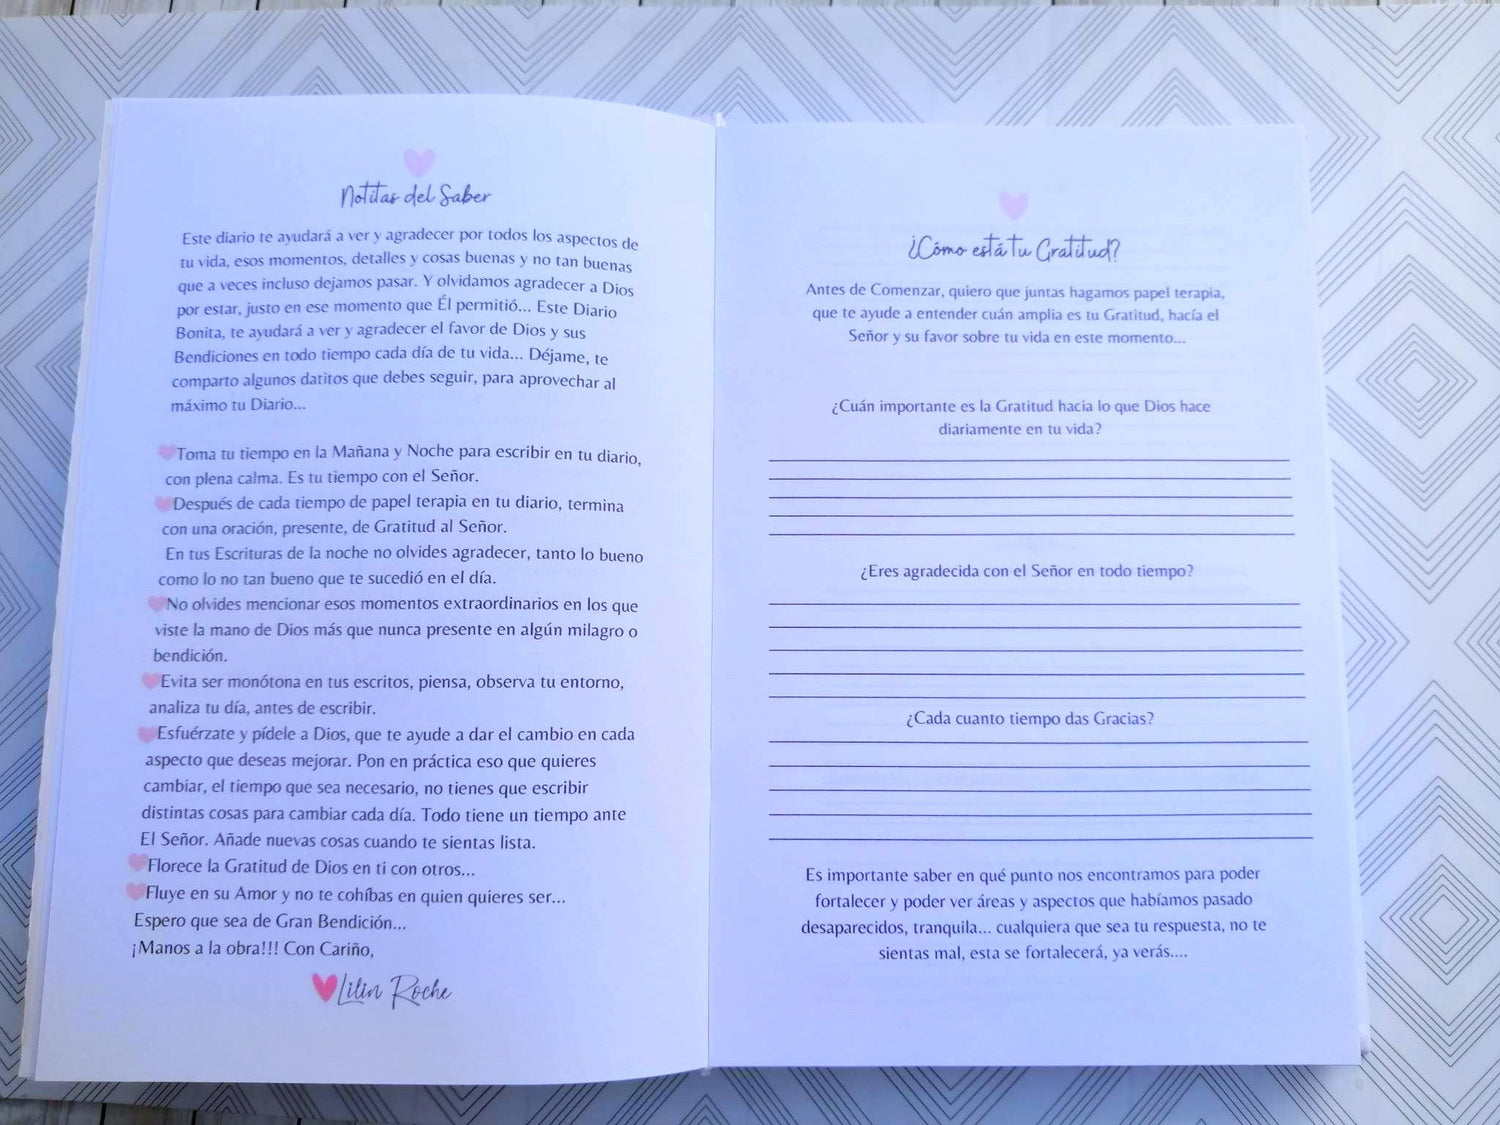 Notitas del Saber
Este diario te ayudará a ver y agradecer por todos los aspectos de
tu vida, esos momentos, detalles y cosas buenas y no tan buenas
que a veces incluso dejamos pasar. Y olvidamos agradecer a Dios
por estar, justo en ese momento que Él permitió... Este Diario
Bonita, te ayudará a ver y agradecer el favor de Dios y sus
Bendiciones en todo tiempo cada día de tu vida... Déjame, te
comparto algunos datitos que debes seguir, para aprovechar al
máximo tu Diario...
Toma tu tiempo en la Mañana y Noche para escribir en tu diario,
con plena calma. Es tu tiempo con el Señor.
Después de cada tiempo de papel terapia en tu diario, termina
con una oración, presente, de Gratitud al Señor.
En tus Escrituras de la noche no olvides agradecer, tanto lo bueno
como lo no tan bueno que te sucedió en el día.
No olvides mencionar esos momentos extraordinarios en los que
viste la mano de Dios más que nunca presente en algún milagro o
bendición.
Evita ser monótona en tus escritos, piensa, observa tu entorno,
analiza tu día, antes de escribir.
Esfuérzate y pídele a Dios, que te ayude a dar el cambio en cada
aspecto que deseas mejorar. Pon en práctica eso que quieres
cambiar, el tiempo que sea necesario, no tienes que escribir
distintas cosas para cambiar cada día. Todo tiene un tiempo ante
El Señor. Añade nuevas cosas cuando te sientas lista.
Florece la Gratitud de Dios en ti con otros...
Fluye en su Amor y no te cohíbas en quien quieres ser...
Espero que sea de Gran Bendición...
¡Manos a la obra!!! Con Cariño,
Lilin Roche
¿Cómo está tu Gratitud?
Antes de Comenzar, quiero que juntas hagamos papel terapia,
que te ayude a entender cuán amplia es tu Gratitud, hacía el
Señor y su favor sobre tu vida en este momento...
¿Cuán importante es la Gratitud hacia lo que Dios hace
diariamente en tu vida?
¿Eres agradecida con el Señor en todo tiempo?
¿Cada cuanto tiempo das Gracias?
Es importante saber en qué punto nos encontramos para poder
fortalecer y poder ver áreas y aspectos que habíamos pasado
desaparecidos, tranquila... cualquiera que sea tu respuesta, no te
sientas mal, esta se fortalecerá, ya verás....